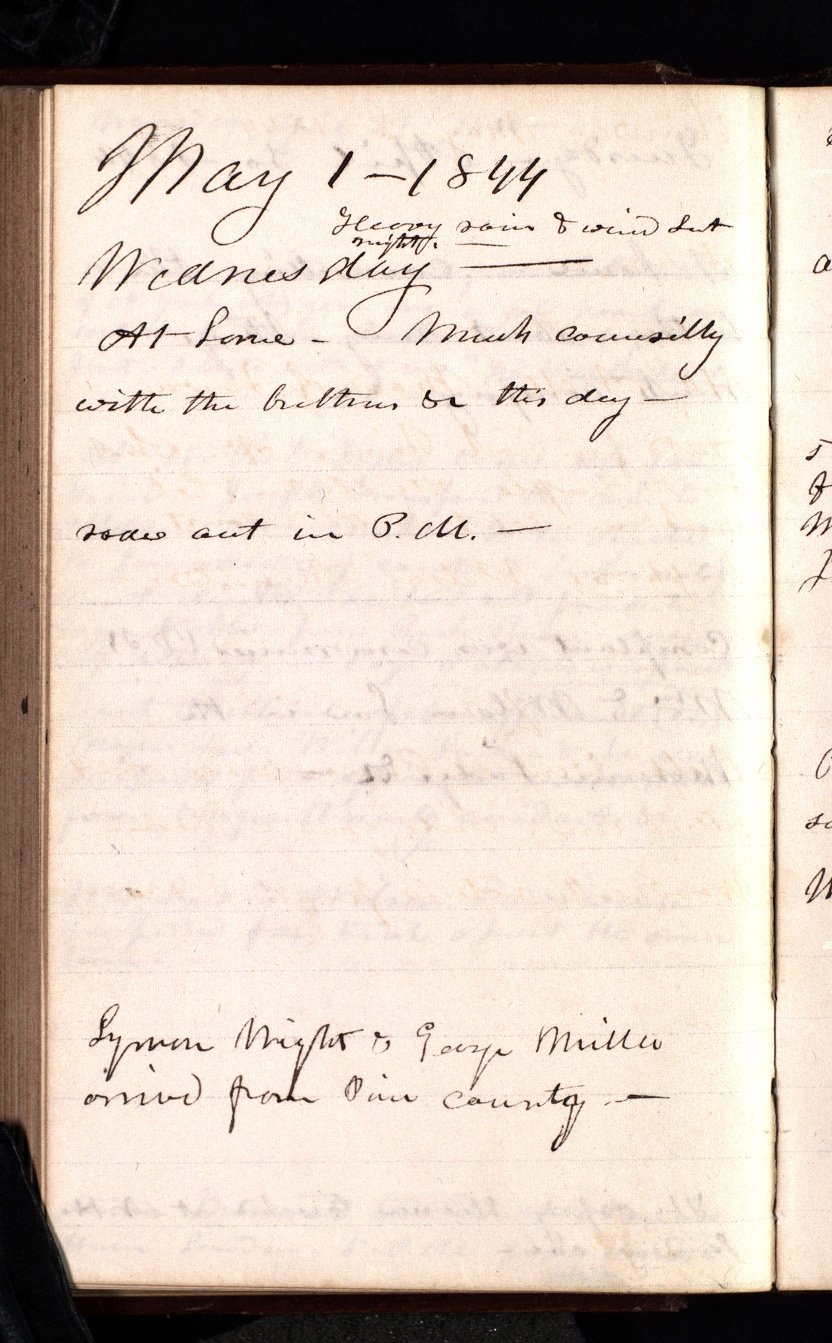 May 1 – 1844
Heavy rain & wind last
night.
Wednesday —
At home – Much
with the brethren &c this day —
rode out in P. M. —
Lyman Wight & George Miller
arrived from Pine county. —